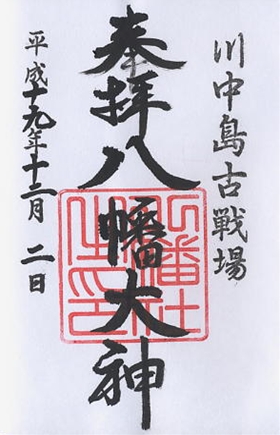 川中島古戦場
奉拝八幡大神
平成十九年十二月二日
八幡社